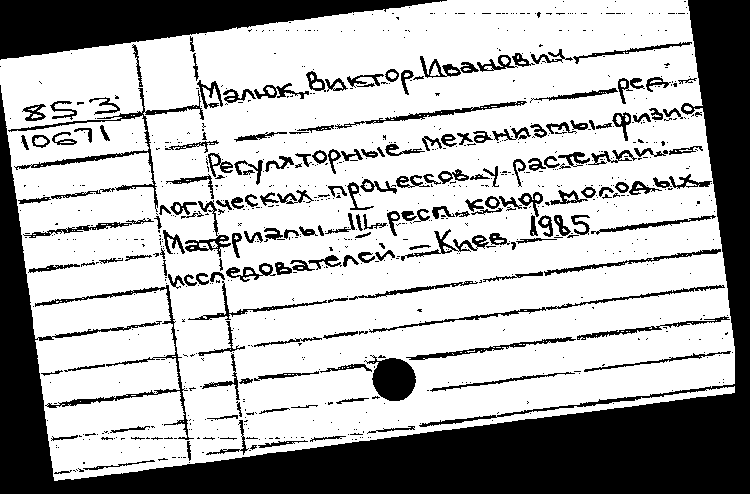 85-3
10671
Малюк, Виктор Иванович,
ред.
Регуляторные механизмы физио-
логических процессов у растений:
Материалы III респ. конф. молодых
исследователей. – Киев, 1985.